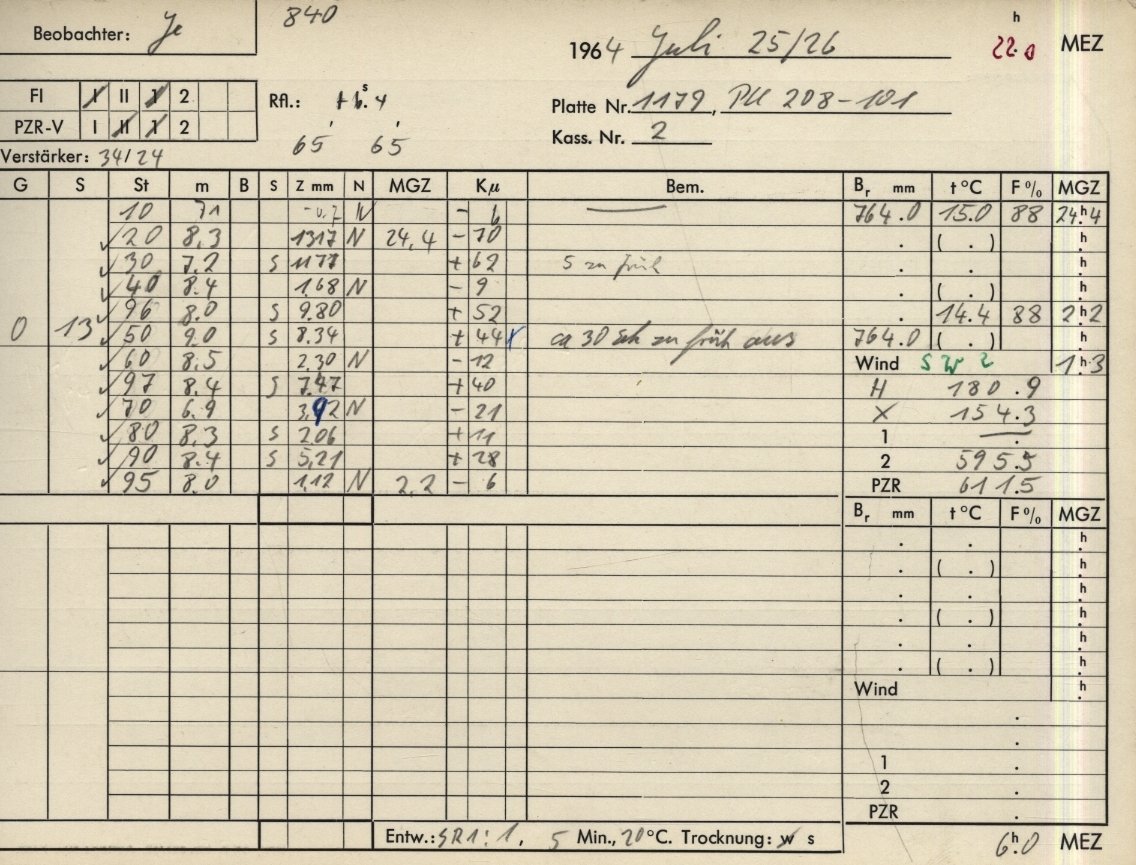 840
Beobachter: Je
1964 Juli 25/26 22.0 h MEZ
FI I II 1 2
PZR-V I II 1 2
Rfl.: + 6.s4
65 65
Platte Nr. 1179, PU 208-101
Kass. Nr. 2
Verstärker: 34/24
G S St m B S Z mm N MGZ Kμ Bem. Br mm t °C F % MGZ
10 7.1 N - 6 764.0 15.0 88 24h.4
20 8.3 1317 N 24.4 - 70 . ( . ) h.
30 7.2 S 1177 + 62 5 zu früh . . h.
40 8.4 1.68 N - 9 . ( . ) h.
96 8.0 S 9.80 + 52 . 14.4 88 2h.2
0 13 50 9.0 S 8.34 + 44 ca 30 sek zu früh aus 764.0 ( . ) h.
60 8.5 2.30 N - 12 Wind SW 2 1h.3
97 8.4 S 7.47 + 40 H 180.9
70 6.9 3.92 N - 21 X 154.3
80 8.3 S 2.06 + 11 1 — .
90 8.4 S 5.21 + 28 2 595.5
95 8.0 1.12 N 2.2 - 6 PZR 611.5
Br mm t °C F % MGZ
. . h.
. ( . ) h.
. . h.
. ( . ) h.
. . h.
. ( . ) h.
Wind h.
.
.
1 .
2 .
PZR .
Entw.: SR1:1, 5 Min., 20°C. Trocknung: w s 6h.0 MEZ